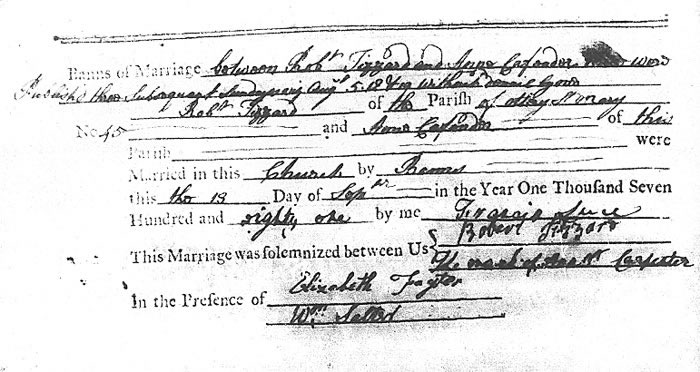 Banns of Marriage between Robt. Tizzard and Anne were
three Subsequent Sundays Aug 5. 12 & 19 without
Robt Tizzard of the Parish of ottery St mary
No 45 and Anne of this
Parish were
Married in this Church by Banns
this the 13 Day of Sepr in the Year One Thousand Seven
Hundred and eighty one by me Francis
This Marriage was solemnized between Us Robert Tizzard
The mark of Carpenter
In the Presence of Elizabeth
Wm.